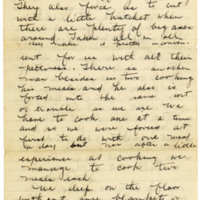 They also force us to cut
with a little hatchet when
there are plenty of big axes
around. Taken all in all
they make it pretty
for us with all their
pettiness. There is another
man besides us two cooking
his meals and he also is
forced into the same sort
of trouble as we are. We
have to cook one at a time
and as we were forced at
first to do with one meal
a day but now after a little
experience at cooking we
manage to cook two
meals each.
We sleep on the floor
without any blankets or